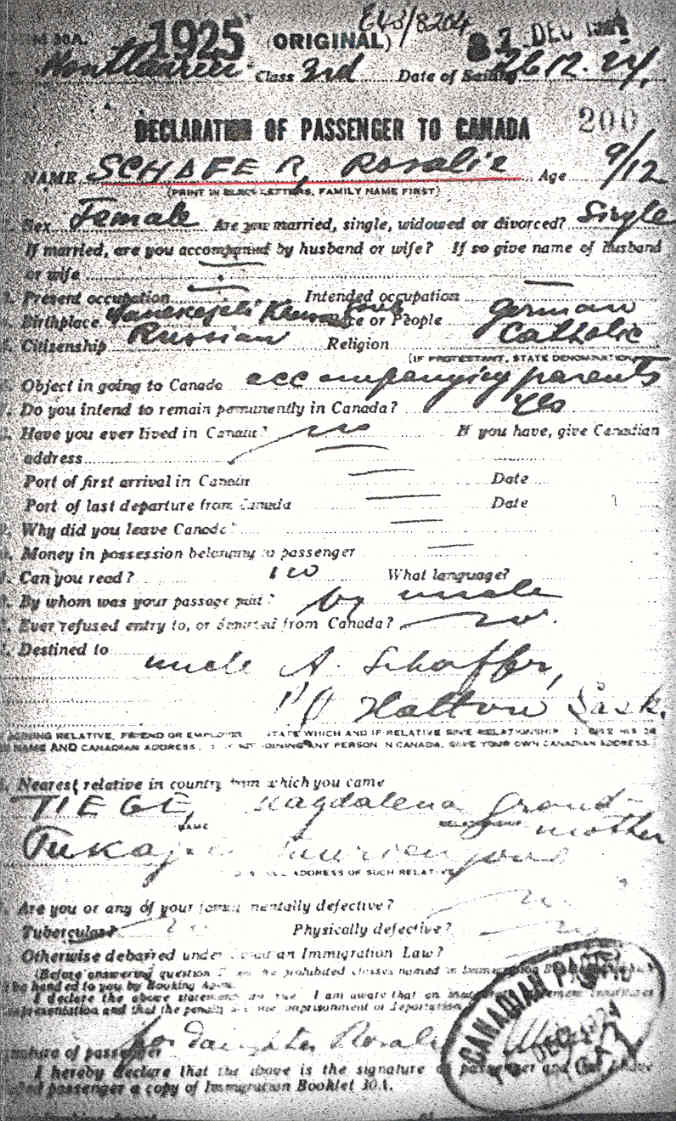 30A. 1925 (ORIGINAL) E43/8204 DEC
Class 3rd Date of Sailing 26.12.24.
DECLARATION OF PASSENGER TO CANADA 200
NAME SCHAFER, Rosalie Age 9/12
(PRINT IN BLOCK LETTERS, FAMILY NAME FIRST)
Sex Female Are you married, single, widowed or divorced? Single
If married, are you accompanied by husband or wife? If so give name of husband
or wife
Present occupation Intended occupation
Birthplace or People German
Citizenship Russian Religion Catholic
(IF PROTESTANT, STATE DENOMINATION
Object in going to Canada accompanying parents
Do you intend to remain permanently in Canada? Yes
Have you ever lived in Canada? no If you have, give Canadian
address
Port of first arrival in Canada Date
Port of last departure from Canada Date
Why did you leave Canada?
Money in possession belonging to passenger
Can you read? no What language?
By whom was your passage paid? by uncle
Ever refused entry to, or deported from Canada? no.
Destined to
uncle A. Schaffer,
PO Hatton Sask.
JOINING RELATIVE, FRIEND OR EMPLOYER STATE WHICH AND IF RELATIVE GIVE RELATIONSHIP GIVE HIS OR
NAME AND CANADIAN ADDRESS. IF NOT JOINING ANY PERSON IN CANADA, GIVE YOUR OWN CANADIAN ADDRESS.
Nearest relative in country from which you came
TIEGE, Magdalena grand-
NAME mother
ADDRESS OF SUCH RELATIVE
Are you or any of your family mentally defective? no
Tubercular? no Physically defective? no
Otherwise debarred under Canadian Immigration Law?
(Before answering question see the prohibited classes named in
be handed to you by Booking Agent.
I declare the above statements are true. I am aware that
representation and that the penalty imprisonment or deportation
for daughter Rosalie
Signature of passenger
I hereby declare that the above is the signature of passenger and
passenger a copy of Immigration Booklet 30A.
CANADIAN PACIFIC
DEC